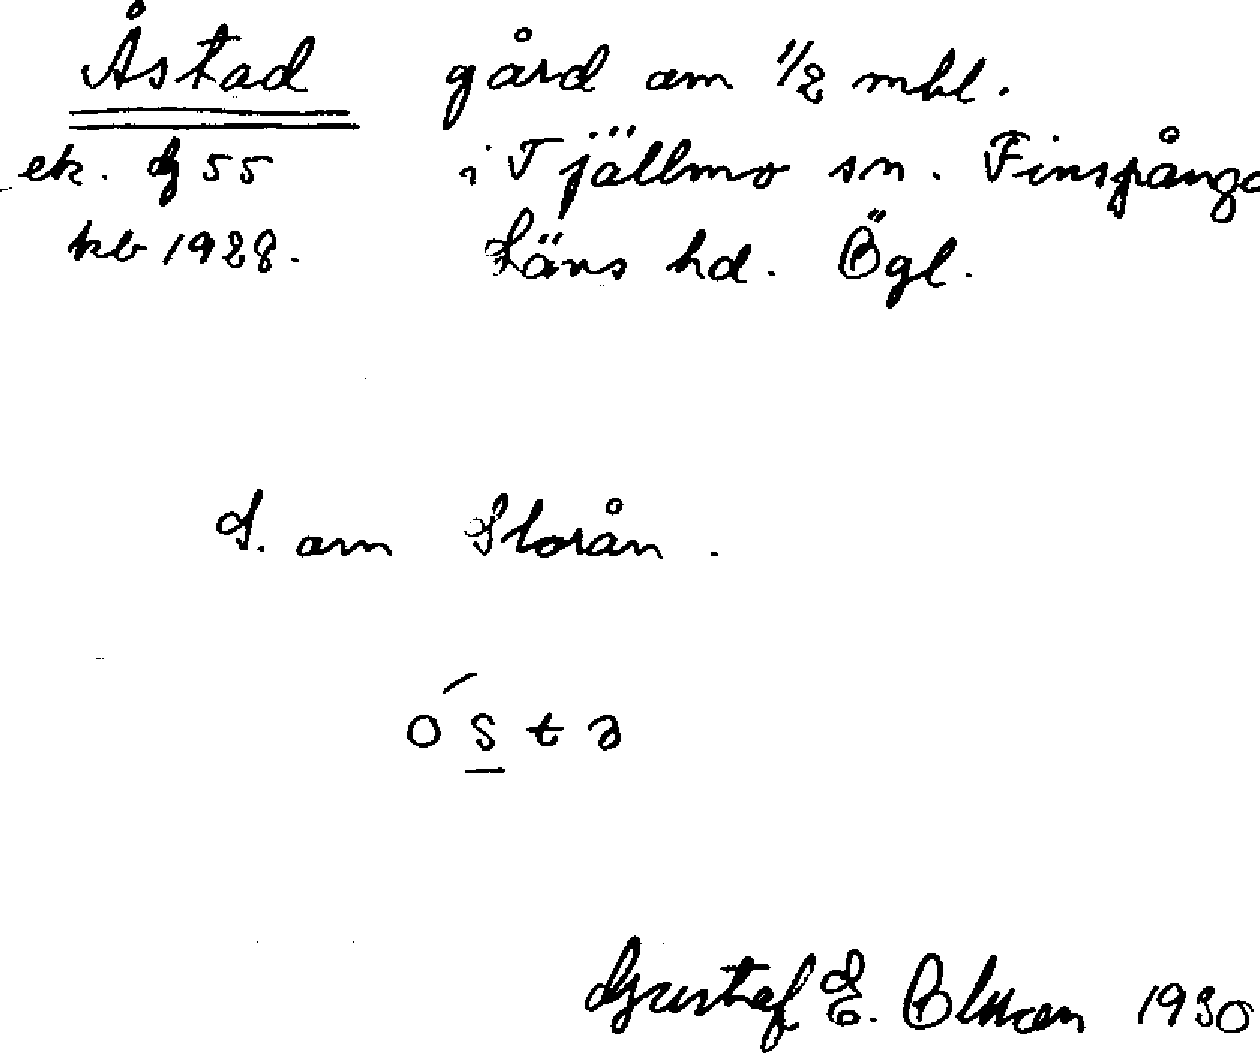 Åstad gård om 1/2 mtl.
ek. df 55 i Tjällmo sn. Finspånga
kb 1928. Läns hd. Ögl.
S. om Storån.
ó s t ə
Gustaf E. Olsson 1930